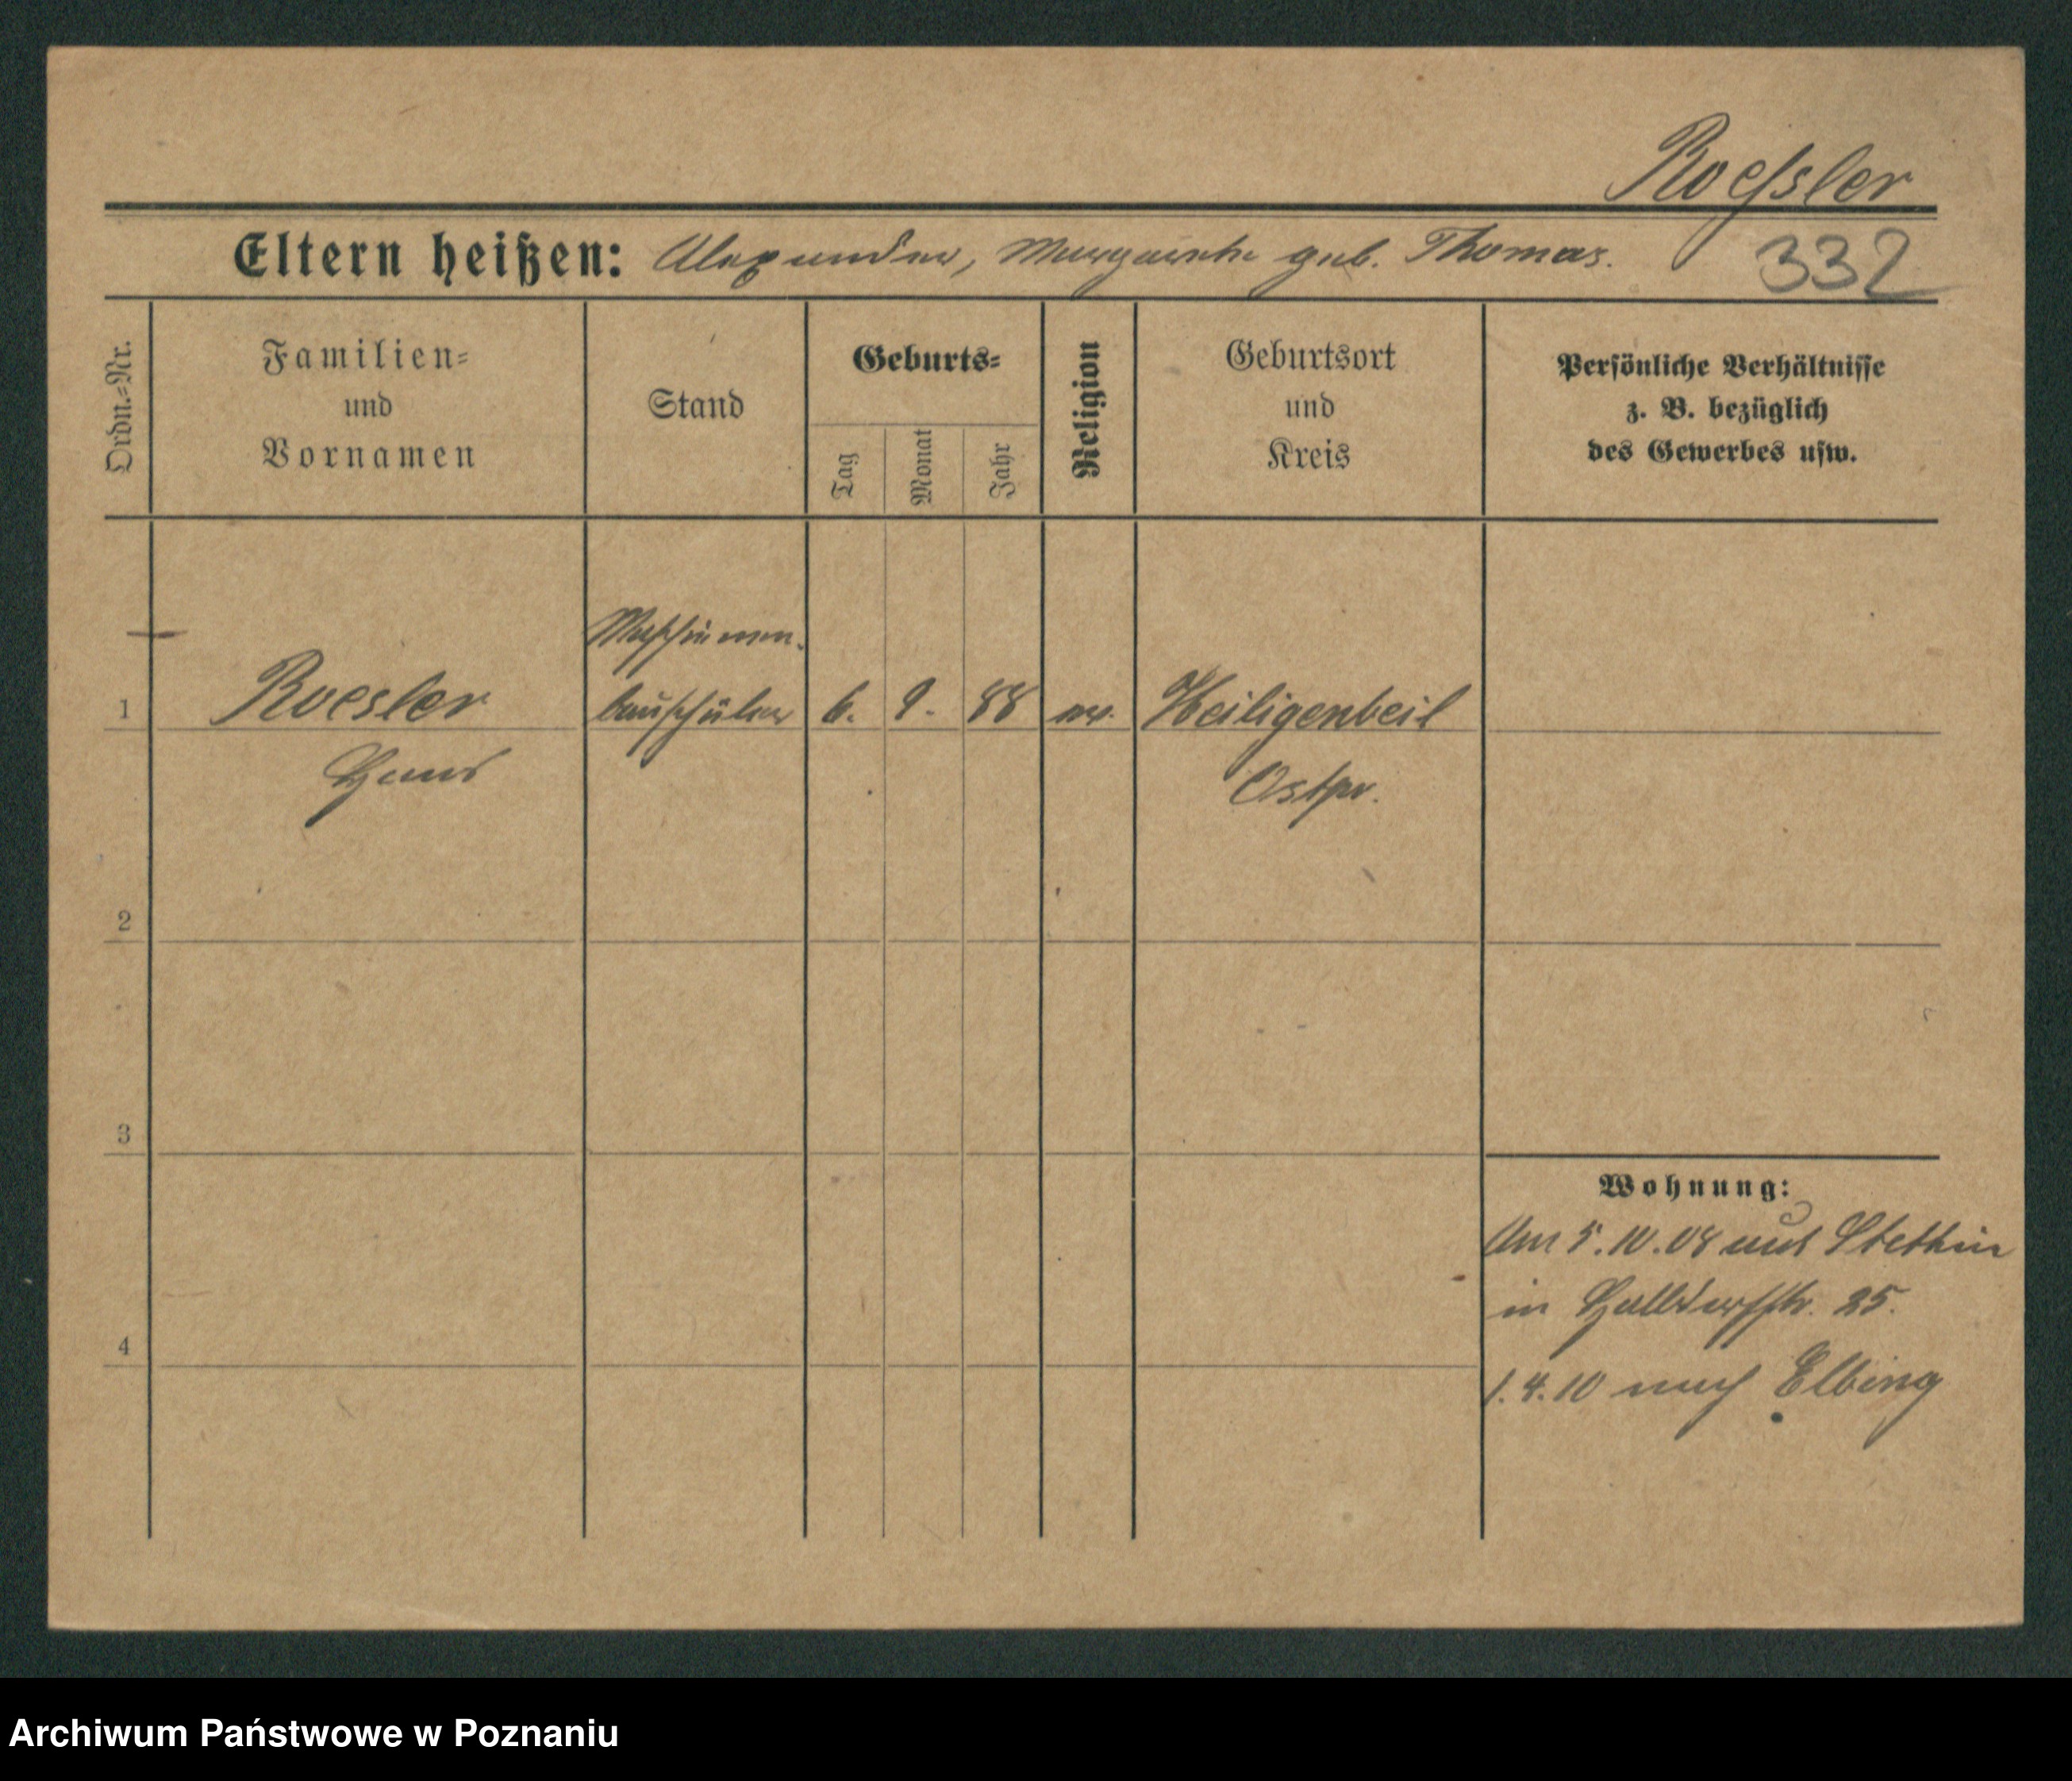 Roeßler
Eltern heißen: Alexander, Margarete geb. Thomas.
332
Ordn.=Nr.
Familien=
und
Vornamen
Stand
Geburts=
Tag
Monat
Jahr
Religion
Geburtsort
und
Kreis
Persönliche Verhältnisse
z. B. bezüglich
des Gewerbes usw.
Maschinen-
1 Roesler bauschüler 6. 9. 88 ev. Heiligenbeil
Hans Ostpr.
2
3
Wohnung:
Am 5.10.08 aus Stettin
in Halldorfstr. 25.
4
1.4.10 nach Elbing
Archiwum Państwowe w Poznaniu